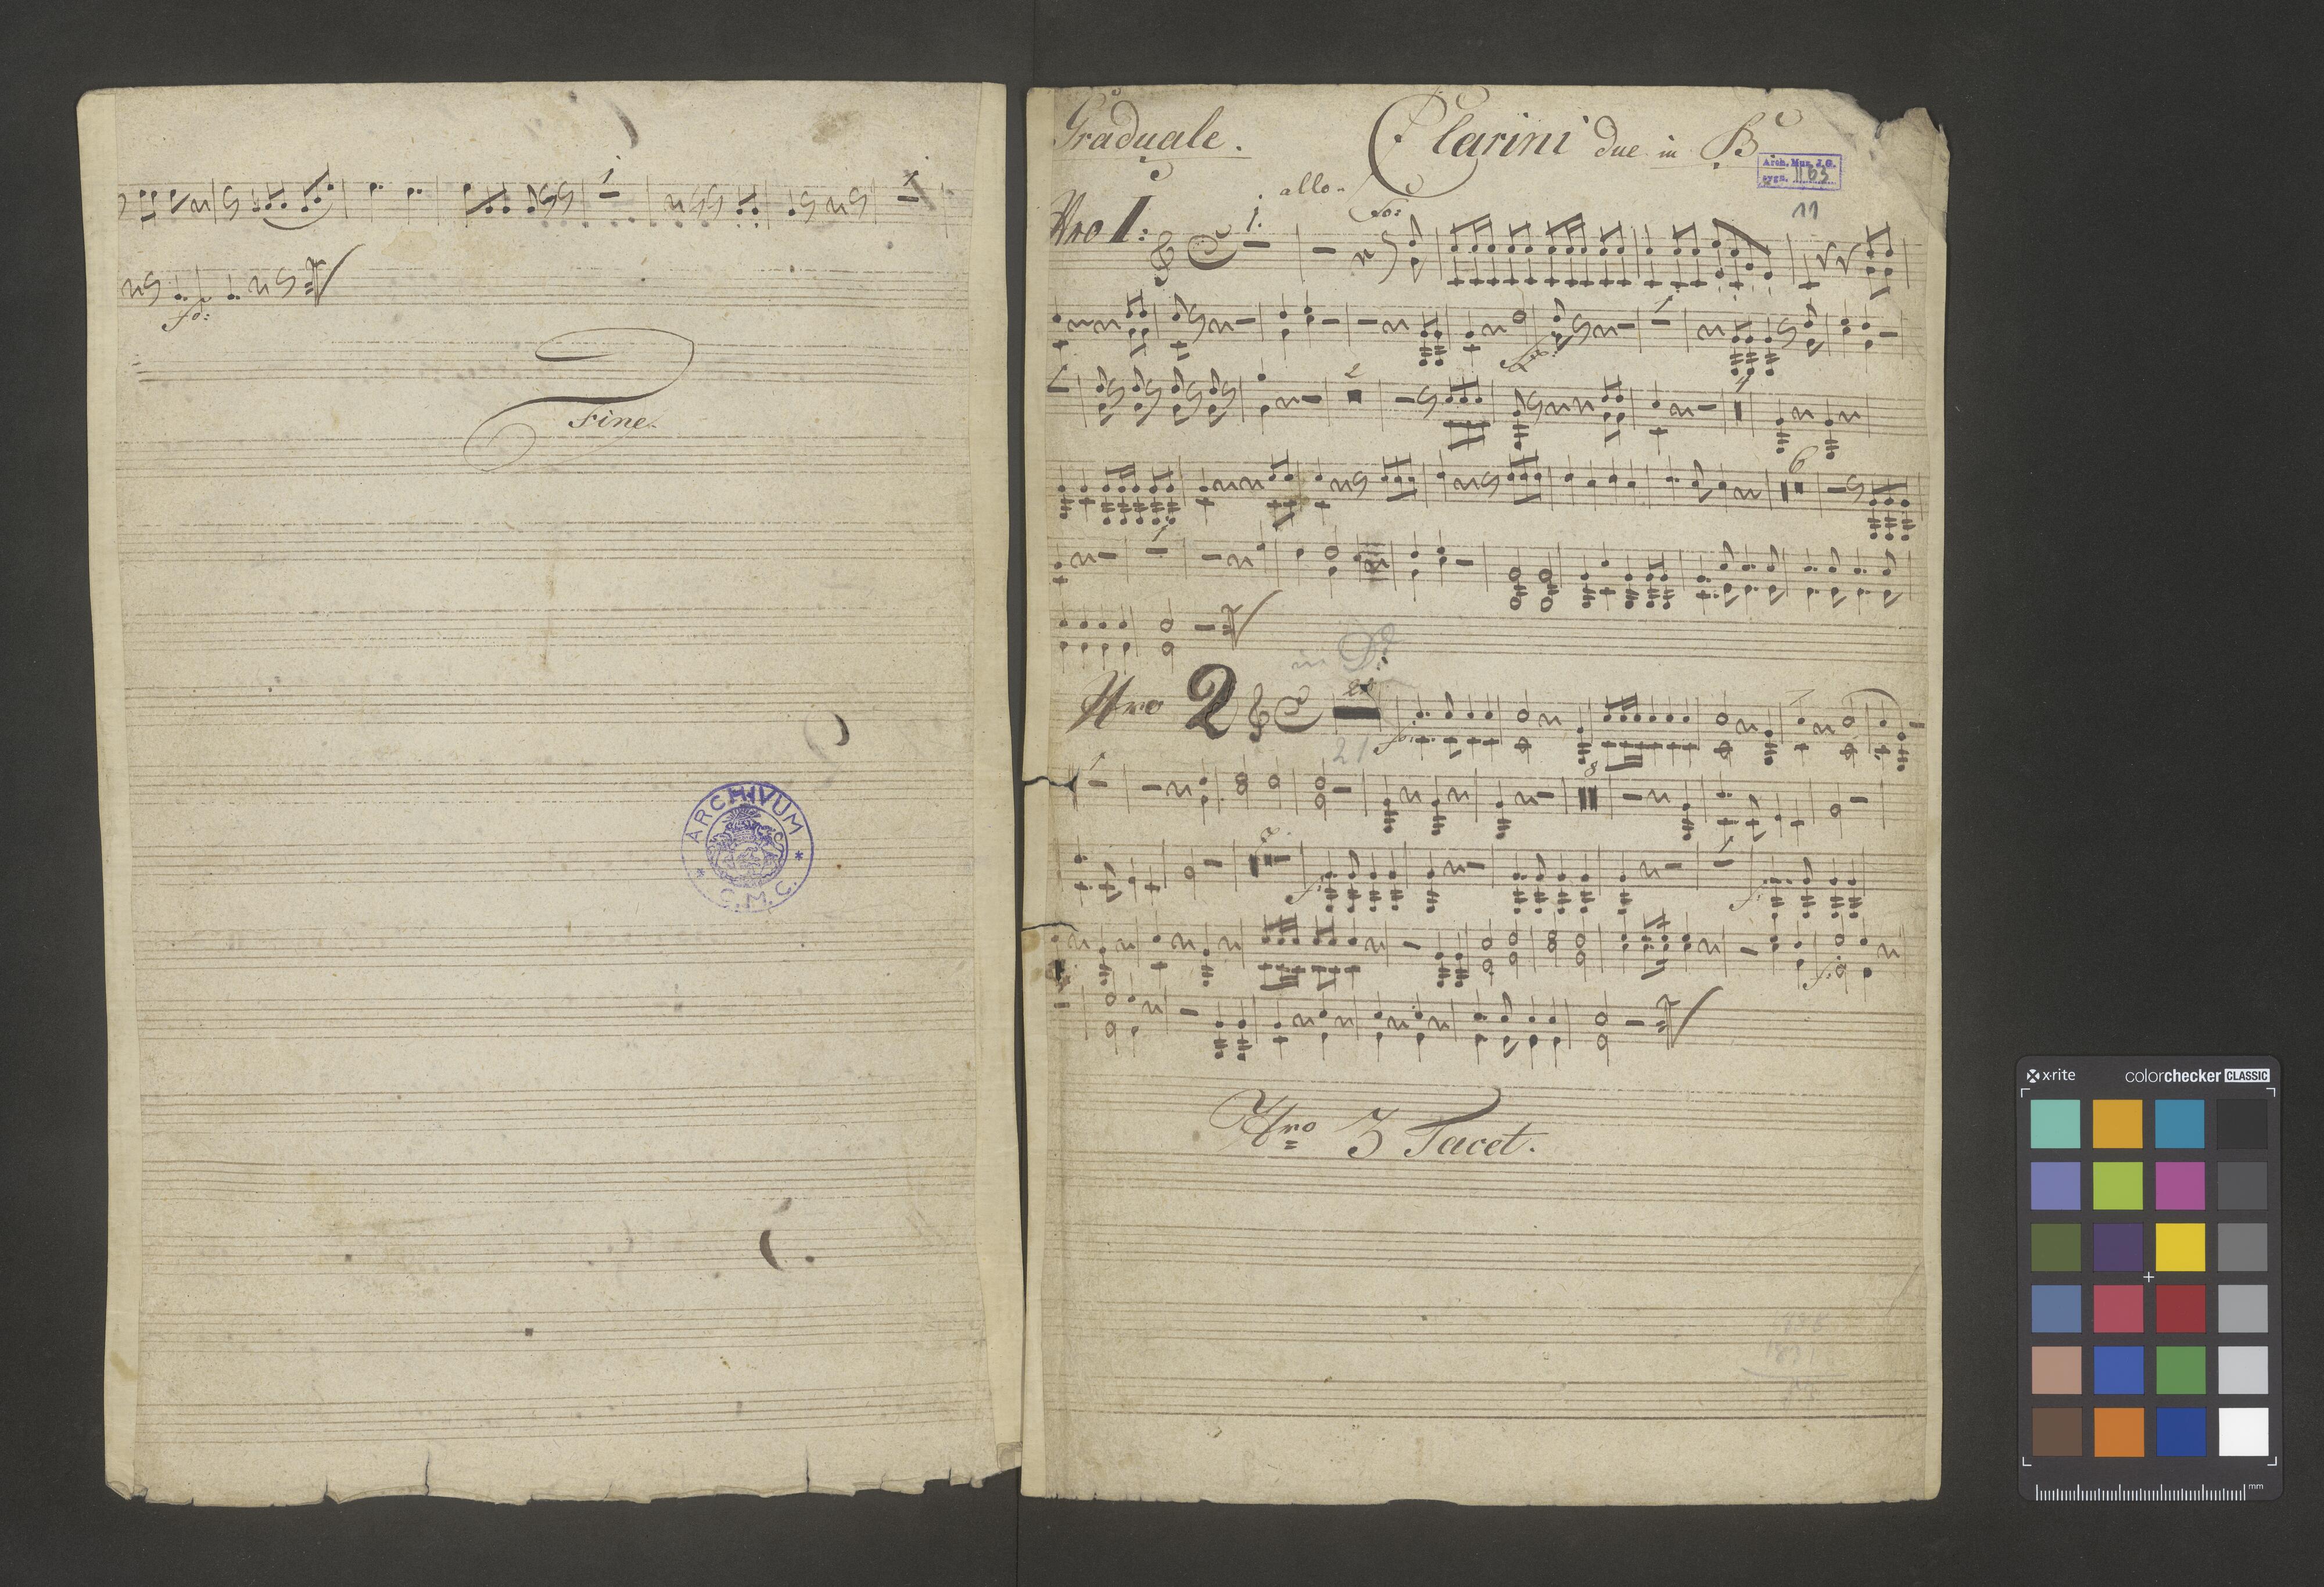 1
fo:
Fine.
ARCHIVUM
C.M.C.
Graduale. Clarini due in B
Arch. Muz. J. G.
sygn. II 63
11
Nro 1: 1. allo. fo:
1
2 4
6
1
in D
Nro 2
21 fo:
1 8
1
Nro 3 Tacet.
x-rite colorchecker CLASSIC
mm